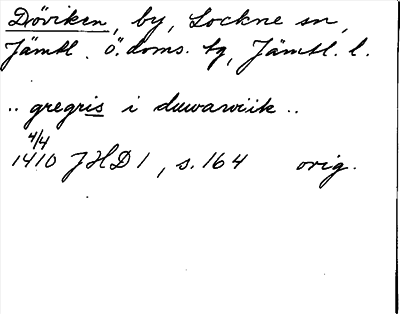 Döviken, by, Lockne sn,
Jämtl. Ö. doms. tg, Jämtl. l.
.. gregris i duwawiik ..
4/4
1410 JHD 1, s. 164 orig.